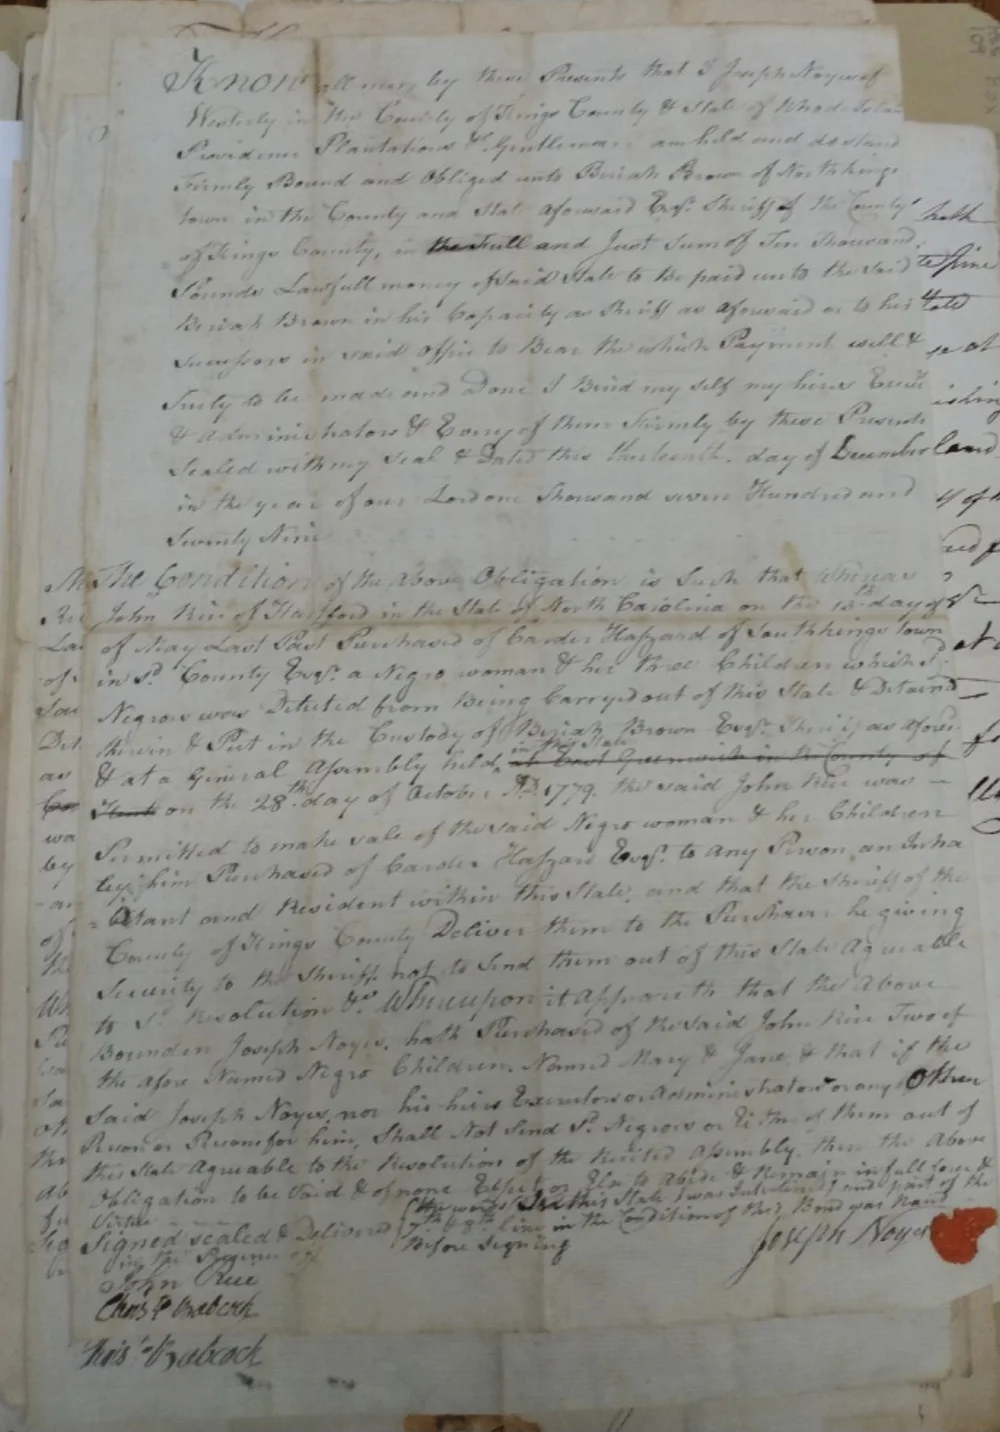 Know all men by these Presents that I Joseph Noyes of
Westerly in the County of Kings County & State of Rhod Island
Providence Plantations &c Gentleman am held and do stand
Firmly Bound and Obliged unto Beriah Brown of Northkings
town in the County and State aforesaid Esqr. Sheriff of the County
of Kings County, in the Full and Just Sum of Ten Thousand
Pounds Lawfull money of said State to Be paid unto the said
Beriah Brown in his Capacity as Sheriff as aforesaid or to his
Successors in said office to Bear the which Payment well &
Truly to be made and Done I Bind my self my hiers Execu
& administrators & Every of them Firmly by these Presents
Sealed with my seal & Dated this thirteenth day of December
in the year of our Lord one Thousand seven Hundred and
Seventy Nine
The Condition of the Above Obligation is Such that whereas
John Rice of Hartford in the State of North Carolina on the 13th day of
of May Last Past Purchased of Carder Hafzard of Southkings town
in sd. County Esqr. a Negro woman & her three Children which sd.
Negros was Detected from Being Carryed out of this State & Detaind
therein & Put in the Custody of Beriah Brown Esqr. Sheriff as afores.
in this State
& at a General Assembly held at East Greenwich in the County of
Kent on the 28th. day of October AD. 1779. the said John Rice was
Permitted to make sale of the said Negro woman & her Children
by him Purchased of Carder Hafzard Esqr. to any Person an Inha
-bitant and Resident within this State, and that the Sheriff of the
County of Kings County Deliver them to the Purchaser he giving
Security to the Sheriff not to Send them out of this State Agreeable
to sd. Resolution &c. Whereupon it appeareth that the Above
Bounden Joseph Noyes, hath Purchased of the said John Rice Two of
the afore Named Negro Children, Named Mary & Jane, & that if the
said Joseph Noyes, nor his hiers Executors or Administrators or any Other
Person or Persons for him, Shall Not Send sd. Negroes or Either of them out of
this State Agreeable to the Resolution of the Recited Assembly, then the Above
Obligation to be Void & of none Effect or Else to Abide & Remain in full force &
Virtue
Signed sealed & Delivered
in the Presence of
the words in this State was Interlined and part of the
7th & 8th line in the Condition of this Bond was
Before Signing
Joseph Noyes
John Rice
Christr Babcock
Christr Babcock